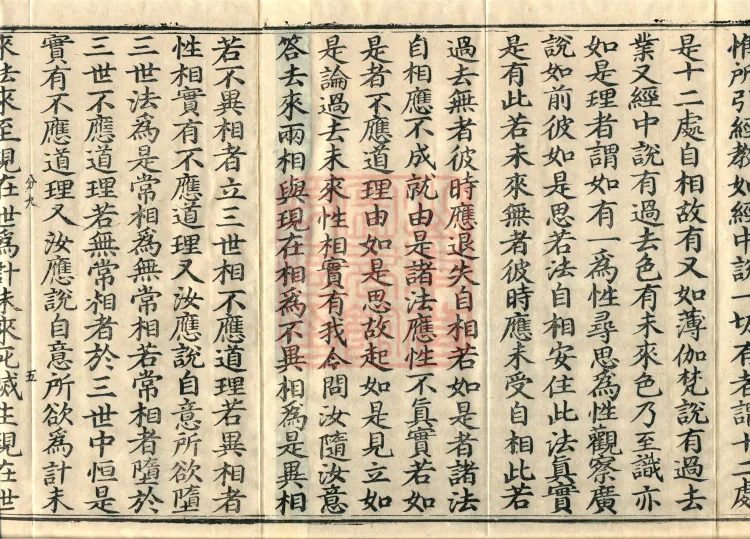 惟所引經教如經中說一切有者謂十二處
是十二處自相故有又如薄伽梵說有過去
業又經中說有過去色有未來色乃至識亦
如是理者謂如有一爲性尋思爲性觀察廣
說如前彼如是思若法自相安住此法真實
是有此若未來無者彼時應未受自相此若
過去無者彼時應退失自相若如是者諸法
自相應不成就由是諸法應性不真實若如
是者不應道理由如是思故起如是見立如
是論過去未來性相實有我今問汝隨汝意
答去來兩相與現在相爲不異相爲是異相
若不異相者立三世相不應道理若異相者
性相實有不應道理又汝應說自意所欲墮
三世法爲是常相爲無常相若常相者墮於
三世不應道理若無常相者於三世中恒是
實有不應道理又汝應說自意所欲爲計未
分九 五
來法來至現在世爲計未來死滅生現在世